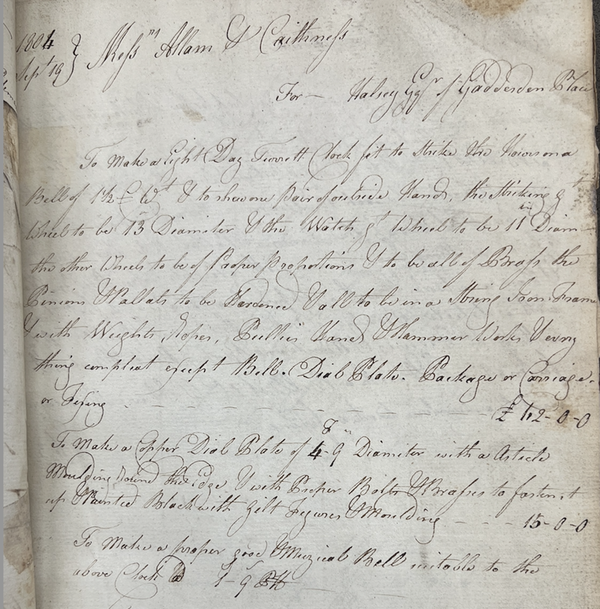 1804
Sept 19 } Messrs Allam & Caithness
For — Halsey Esqr of Gaddesden Place
To Make a Eight Day Turrett Clock fit to Strike the Hours on a
Bell of 1½ Ct & to shew one pair of outside Hands, the Striking gt
Wheel to be 13 Diameter & the Watch gt Wheel to be 11 in Diam
the other Wheels to be of Proper Proportions & to be all of Brass the
Pinions & Pallats to be Hardened & all to be in a Strong Iron Frame
& with Weights, Ropes, Pullies Hands & Hammer Work & Every
thing compleat except Bell. Dial Plate. Package or Carriage.
or Fixing - - - - - £ 112-0-0
To Make a Copper Dial Plate of 4 F-9 in Diameter with a Asticle
Moulding round the edge & with Proper Bolts & Brasses to fasten it
up & Painted Black with Gilt Figures & Moulding - - - 15-0-0
To Make a proper good & Muzical Bell suitable to the
above Clock